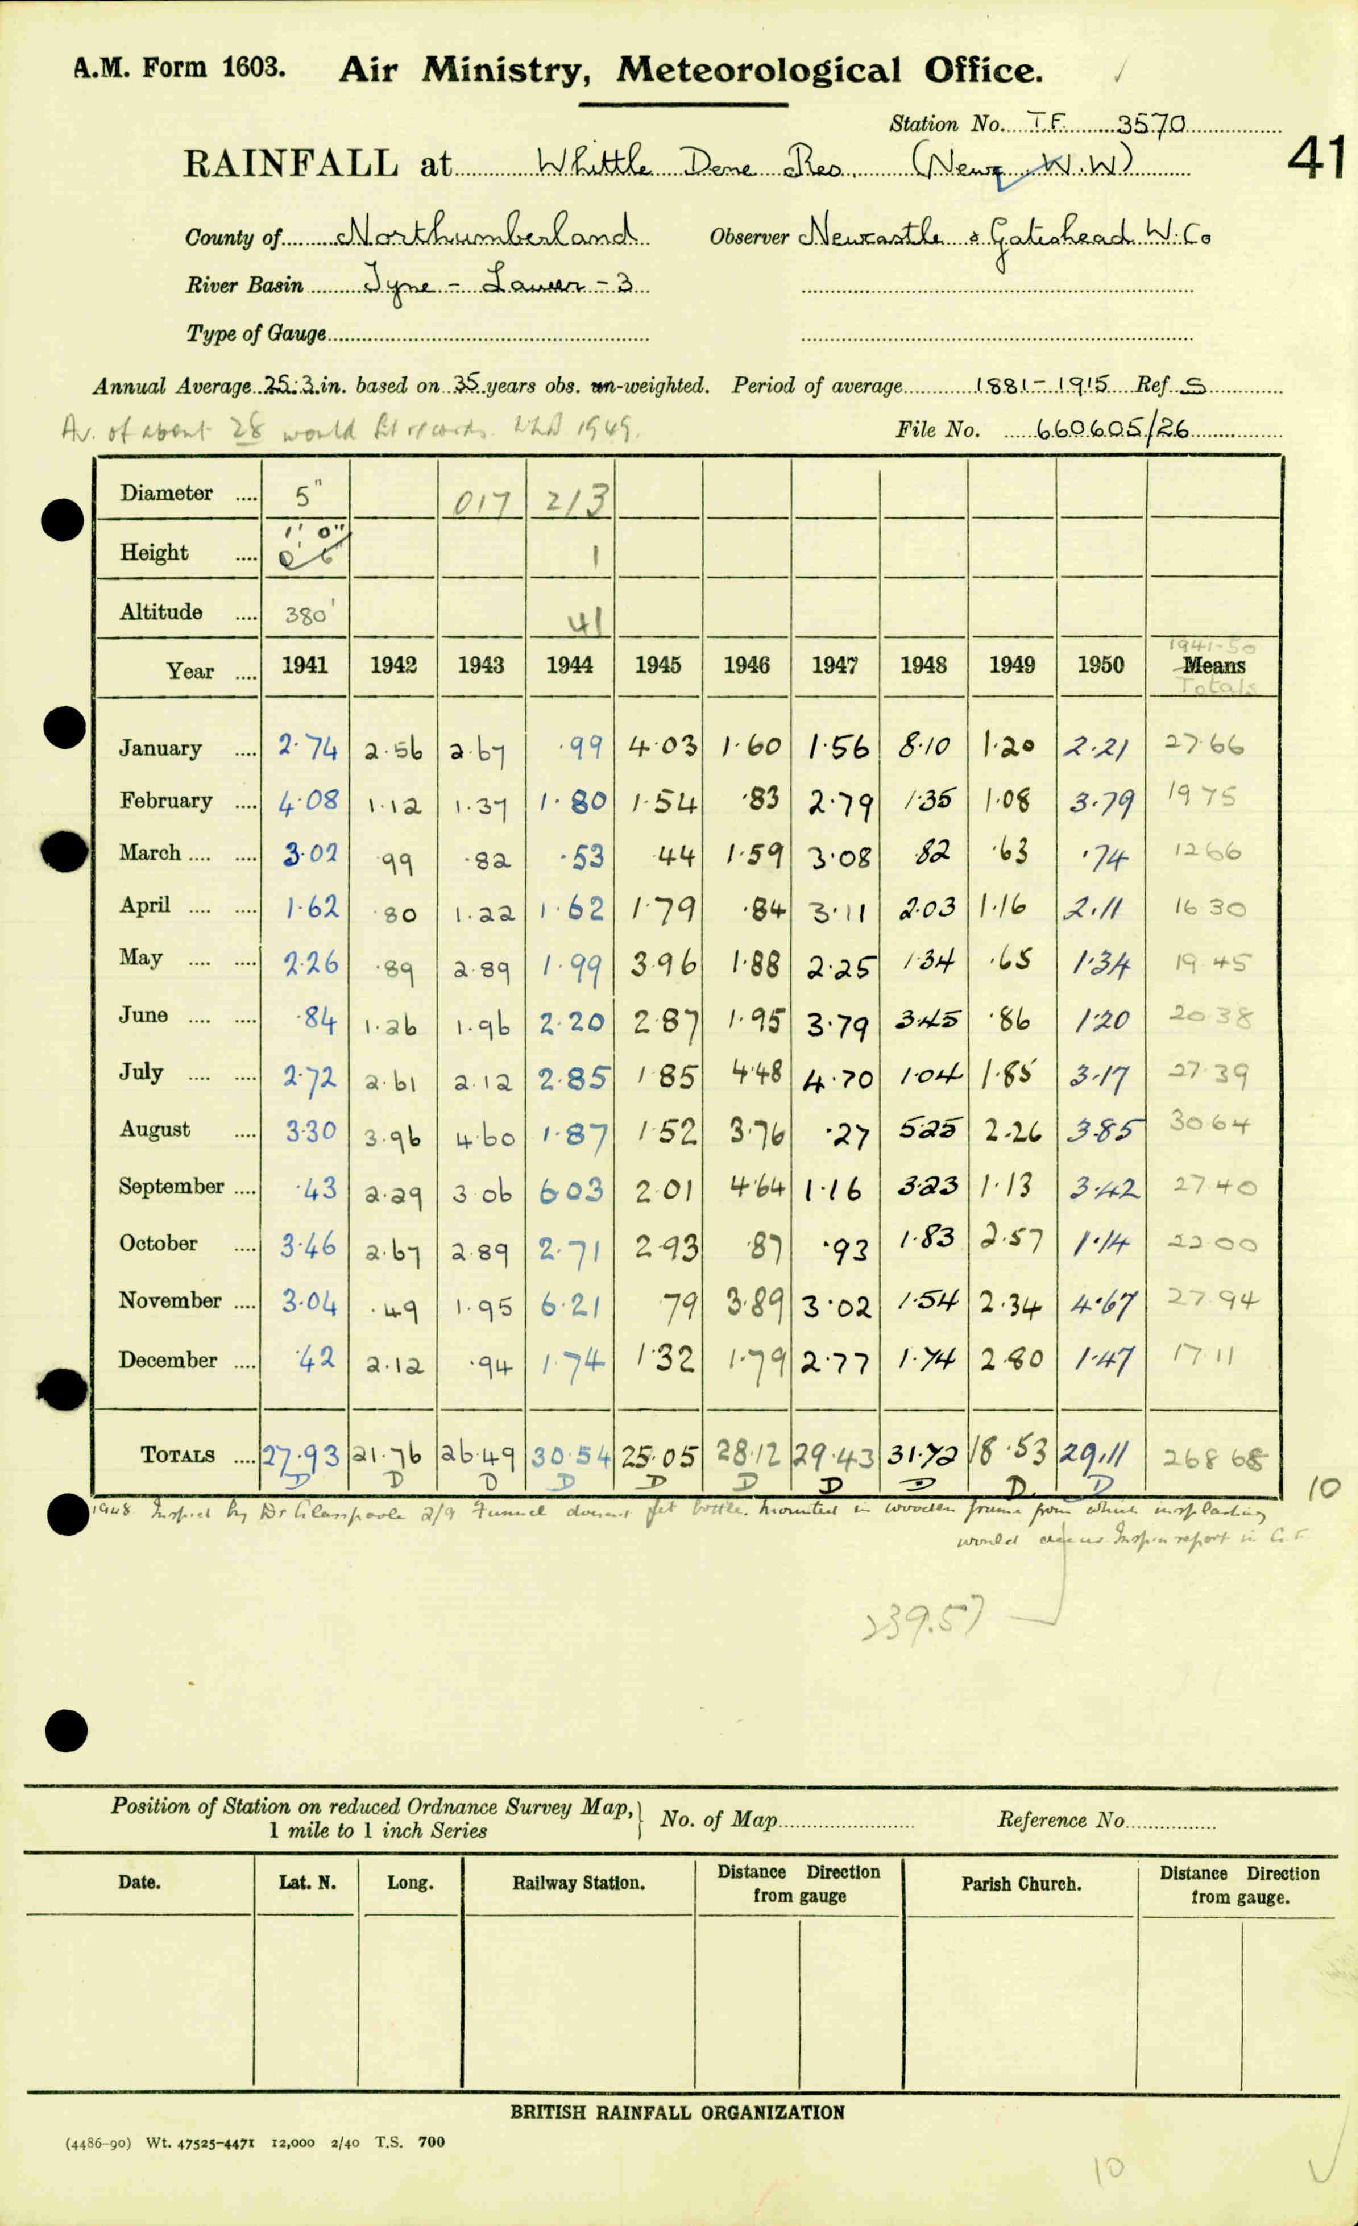 A.M. Form 1603. Air Ministry, Meteorological Office.
Station No. T.F. 3570
RAINFALL at Whittle Dene Res. (Newc. W.W) 41
County of Northumberland Observer Newcastle & Gateshead W. Co
River Basin Tyne - Lower - 3
Type of Gauge
Annual Average 25.3 in. based on 35 years obs. un-weighted. Period of average 1881-1915 Ref S
Av. of about 28 would fit records. 1949.
File No. 660605/26
Diameter .... 5" 017 213
Height .... 1' 0" 0' 6" 1
Altitude .... 380' 41
1941-50
Year .... 1941 1942 1943 1944 1945 1946 1947 1948 1949 1950 Means
Totals
January .... 2.74 2.56 2.67 .99 4.03 1.60 1.56 8.10 1.20 2.21 27.66
February .... 4.08 1.12 1.37 1.80 1.54 .83 2.79 1.35 1.08 3.79 19 75
March .... .... 3.02 .99 .82 .53 .44 1.59 3.08 .82 .63 .74 12 66
April .... .... 1.62 .80 1.22 1.62 1.79 .84 3.11 2.03 1.16 2.11 16 30
May .... .... 2.26 .89 2.89 1.99 3.96 1.88 2.25 1.34 .65 1.34 19.45
June .... .... .84 1.26 1.96 2.20 2.87 1.95 3.79 3.45 .86 1.20 20 38
July .... .... 2.72 2.61 2.12 2.85 1.85 4.48 4.70 1.04 1.85 3.17 27.39
August .... 3.30 3.96 4.60 1.87 1.52 3.76 .27 5.25 2.26 3.85 30 64
September .... .43 2.29 3.06 6.03 2.01 4.64 1.16 3.23 1.13 3.42 27 40
October .... 3.46 2.67 2.89 2.71 2.93 .87 .93 1.83 2.57 1.14 22 00
November .... 3.04 .49 1.95 6.21 .79 3.89 3.02 1.54 2.34 4.67 27.94
December .... .42 2.12 .94 1.74 1.32 1.79 2.77 1.74 2.80 1.47 17 11
TOTALS .... 27.93 21.76 26.49 30.54 25.05 28.12 29.43 31.72 18.53 29.11 268 68
D D D D D D D D D D 10
1948 Inspected by Dr Glasspoole 2/9 Funnel doesn't fit bottle. Mounted in wooden frame from which insplashing
would occur Inspn report in
239.57
Position of Station on reduced Ordnance Survey Map, 1 mile to 1 inch Series } No. of Map Reference No.
Date. Lat. N. Long. Railway Station. Distance Direction from gauge Parish Church. Distance Direction from gauge.
BRITISH RAINFALL ORGANIZATION
(4486-90) Wt. 47525-4471 12,000 2/40 T.S. 700
10